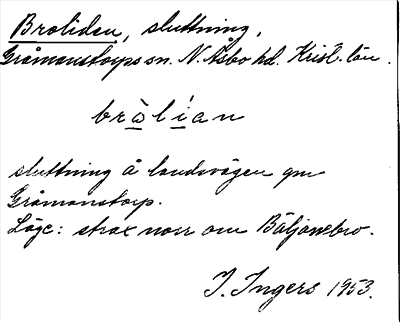 Broliden, sluttning,
Gråmanstorps sn. N. Åsbo hd. Krist. län.
bràlían
sluttning å landsvägen gm
Gråmanstorp.
Läge: strax norr om Bäljanebro.
I. Ingers 1953.